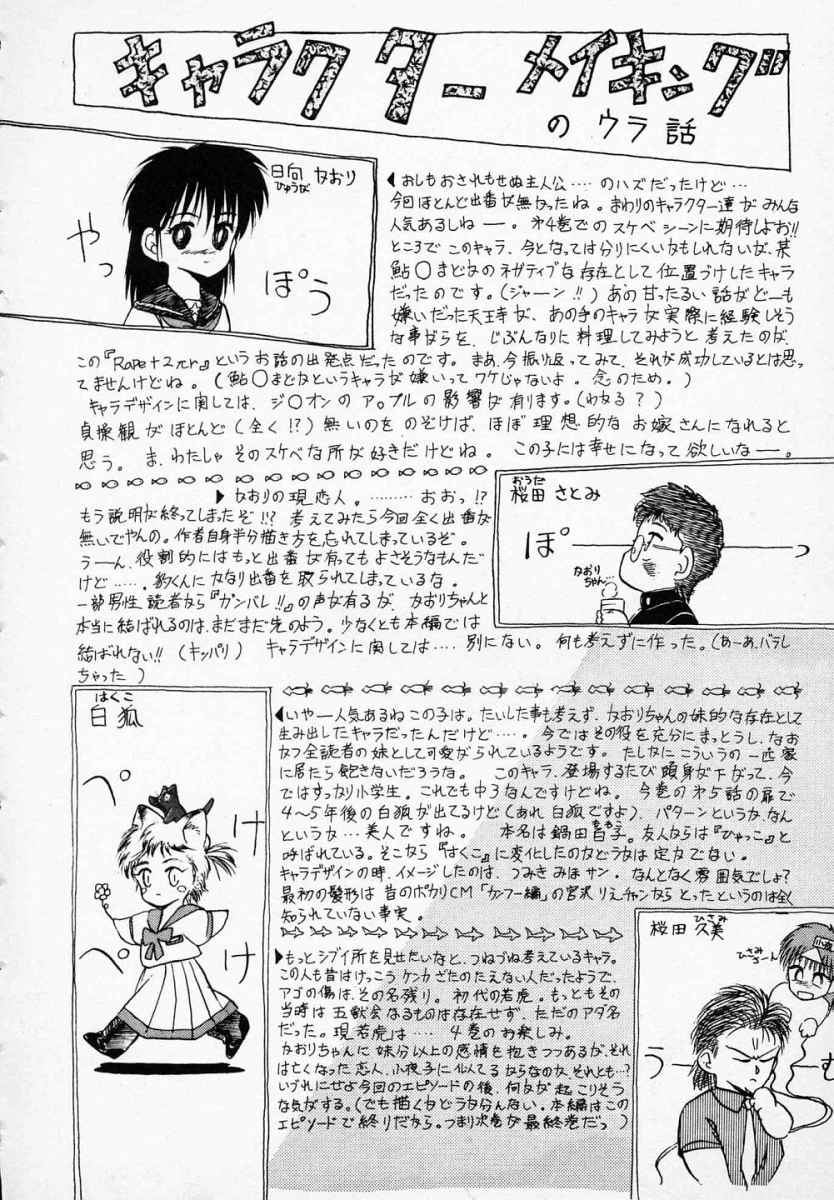 キャラクターメイキング
のウラ話
日向 かおり
ひゅうが
やっ
ぽう
◀おしもおされもせぬ主人公‥‥のハズだったけど…
今回ほとんど出番が無かったね。まわりのキャラクター達がみんな
人気あるしねー。第4巻でのスケベシーンに期待しよお!!
ところでこのキャラ、今となっては分りにくいかもしれないが、某
鮎○まどかのネガティブな存在として位置づけしたキャラ
だったのです。(ジャーン!!)あの甘ったるい話がどーも
嫌いだった天王寺が、あの手のキャラが実際に経験しそう
な事がらを、じぶんなりに料理してみようと考えたのが、
この『Rape+2πr』というお話の出発点だったのです。まあ、今振り返ってみて、それが成功しているとは思っ
てませんけどね。(鮎○まどかというキャラが嫌いってワケじゃないよ。念のため。)
キャラデザインに関しては、ジ○オンのア○プルの影響が有ります。(わかる?)
貞操観がほとんど(全く!?)無いのをのぞけば、ほぼ理想的なお嫁さんになれると
思う。ま、わたしゃそのスケベな所が好きだけどね。この子には幸せになって欲しいなー。
おうた
桜田 さとみ
ぽー
っ
かおり
ちゃん…
▶かおりの現恋人。‥‥‥おおっ!?
もう説明が終ってしまったぞ!!? 考えてみたら今回全く出番が
無いでやんの。作者自身半分描き方を忘れてしまっているぞ。
うーん、役割的にはもっと出番が有ってもよさそうなもんだ
けど‥‥、豹くんにかなり出番を取られてしまっているな。
一部男性読者から『ガンバレ!!』の声が有るが、かおりちゃんと
本当に結ばれるのは、まだまだ先のよう。少なくとも本編では
結ばれない!!(キッパリ) キャラデザインに関しては‥‥別にない。何も考えずに作った。(あーあ、バラし
ちゃった)
はくこ
白狐
ぺ
け
ぺ
け
◀いやー人気あるねこの子は。たいした事も考えず、かおりちゃんの妹的な存在として
生み出したキャラだったんだけど‥‥。今ではその役を充分にまっとうし、なお
かつ全読者の妹として可愛がられているようです。たしかにこういうの一匹家
に居たら飽きないだろうな。 このキャラ、登場するたび頭身が下がって、今
ではすっかり小学生。これでも中3なんですけどね。今巻の第5話の扉で
4～5年後の白狐が出てるけど(あれ白狐ですよ)、パターンというか、なん
というか…美人ですね。 本名は鍋田百子。友人からは『ひゃっこ』と
ももこ
呼ばれている。そこから『はくこ』に変化したのかどうかは定かでない。
キャラデザインの時、イメージしたのは、つみきみほサン。なんとなく雰囲気でしょ?
最初の髪形は昔のポカリCM「カンフー編」の宮沢りえチャンからとったというのは全く
知られていない事実。
ひさみ
桜田 久美
ひさみ
小夜
うー
む
◀もっとシブイ所を見せたいなと、つねづね考えているキャラ。
この人も昔はけっこうケンカざたのたえない人だったようで、
アゴの傷は、その名残り。初代の若虎。もっともその
当時は五獣会なるものは存在せず、ただのアダ名
だった。現若虎は‥‥4巻のお楽しみ。
かおりちゃんに妹分以上の感情を抱きつつあるが、それ
は亡くなった恋人、小夜子に似てるからなのか、それとも…?
いづれにせよ今回のエピソードの後、何かが起こりそう
な気がする。(でも描くかどうか分んない。本編はこの
エピソードで終りだから。つまり次巻が最終巻だっ)